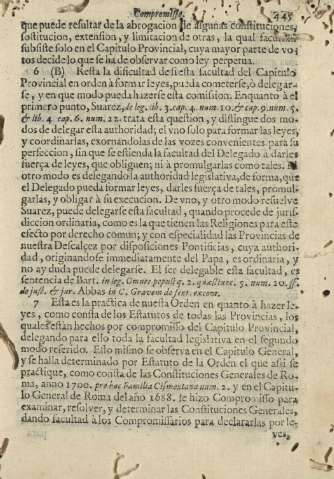 Compromisso. 445
que puede resultar de la abrogacion de algunas constituciones,
sostitucion, extension, y limitacion de otras, la qual facultad
subsiste solo en el Capitulo Provincial, cuya mayor parte de vo-
tos decide lo que se ha de observar como ley perpetua.
6 (B) Resta la dificultad de si esta facultad del Capitulo
Provincial en orden à formar leyes, pueda cometerse, ò delegar-
se, y en que modo pueda hazerse esta comission. Enquanto à el
primero punto, Suarez, de leg. lib. 3. cap. 4. num. 10. & cap. 9. num. 5.
& lib. 4. cap. 6. num. 22. trata esta question, y distingue dos mo-
dos de delegar esta authoridad; el vno solo para formar las leyes,
y coordinarlas, exornandolas de las vozes convenientes para su
perfeccion, sin que se estienda la facultad del Delegado à darles
fuerça de leyes, que obliguen; ni à promulgarlas como tales. El
otro modo es delegando la authoridad legislativa, de forma, que
el Delegado pueda formar leyes, darles fuerça de tales, promul-
garlas, y obligar à su execucion. De vno, y otro modo resuelve
Suarez, puede delegarse esta facultad, quando procede de juris-
diccion ordinaria, como es la que tienen las Religiones para este
efecto por derecho comun; y con especialidad las Provincias de
nuestra Descalçez por disposiciones Pontificias, cuya authori-
dad, originandose immediatamente del Papa, es ordinaria, y
no ay duda puede delegarse. El ser delegable esta facultad, es
sentencia de Bart. in leg. Omnes populi, q. 2. quæstione. 5. num. 20. ff.
de just. & jur. Abbas in C. Gravem de sent. excom.
7 Esta es la practica de nuestra Orden en quanto à hazer le-
yes, como consta de los Estatutos de todas las Provincias, los
quales están hechos por compromisso del Capitulo Provincial,
delegando para ello toda la facultad legislativa en el segundo
modo referido. Esto mismo se observa en el Capitulo General,
y se halla determinado por Estatuto de la Orden el que assi se
practique, como consta de las Constituciones Generales de Ro-
ma, anno 1700. pro hac Familia Cismontana num. 2. y en el Capitu-
lo General de Roma del año 1688. se hizo Compromisso para
examinar, resolver, y determinar las Constituciones Generales,
dando facultad à los Compromissarios para declararlas por le-
yes,